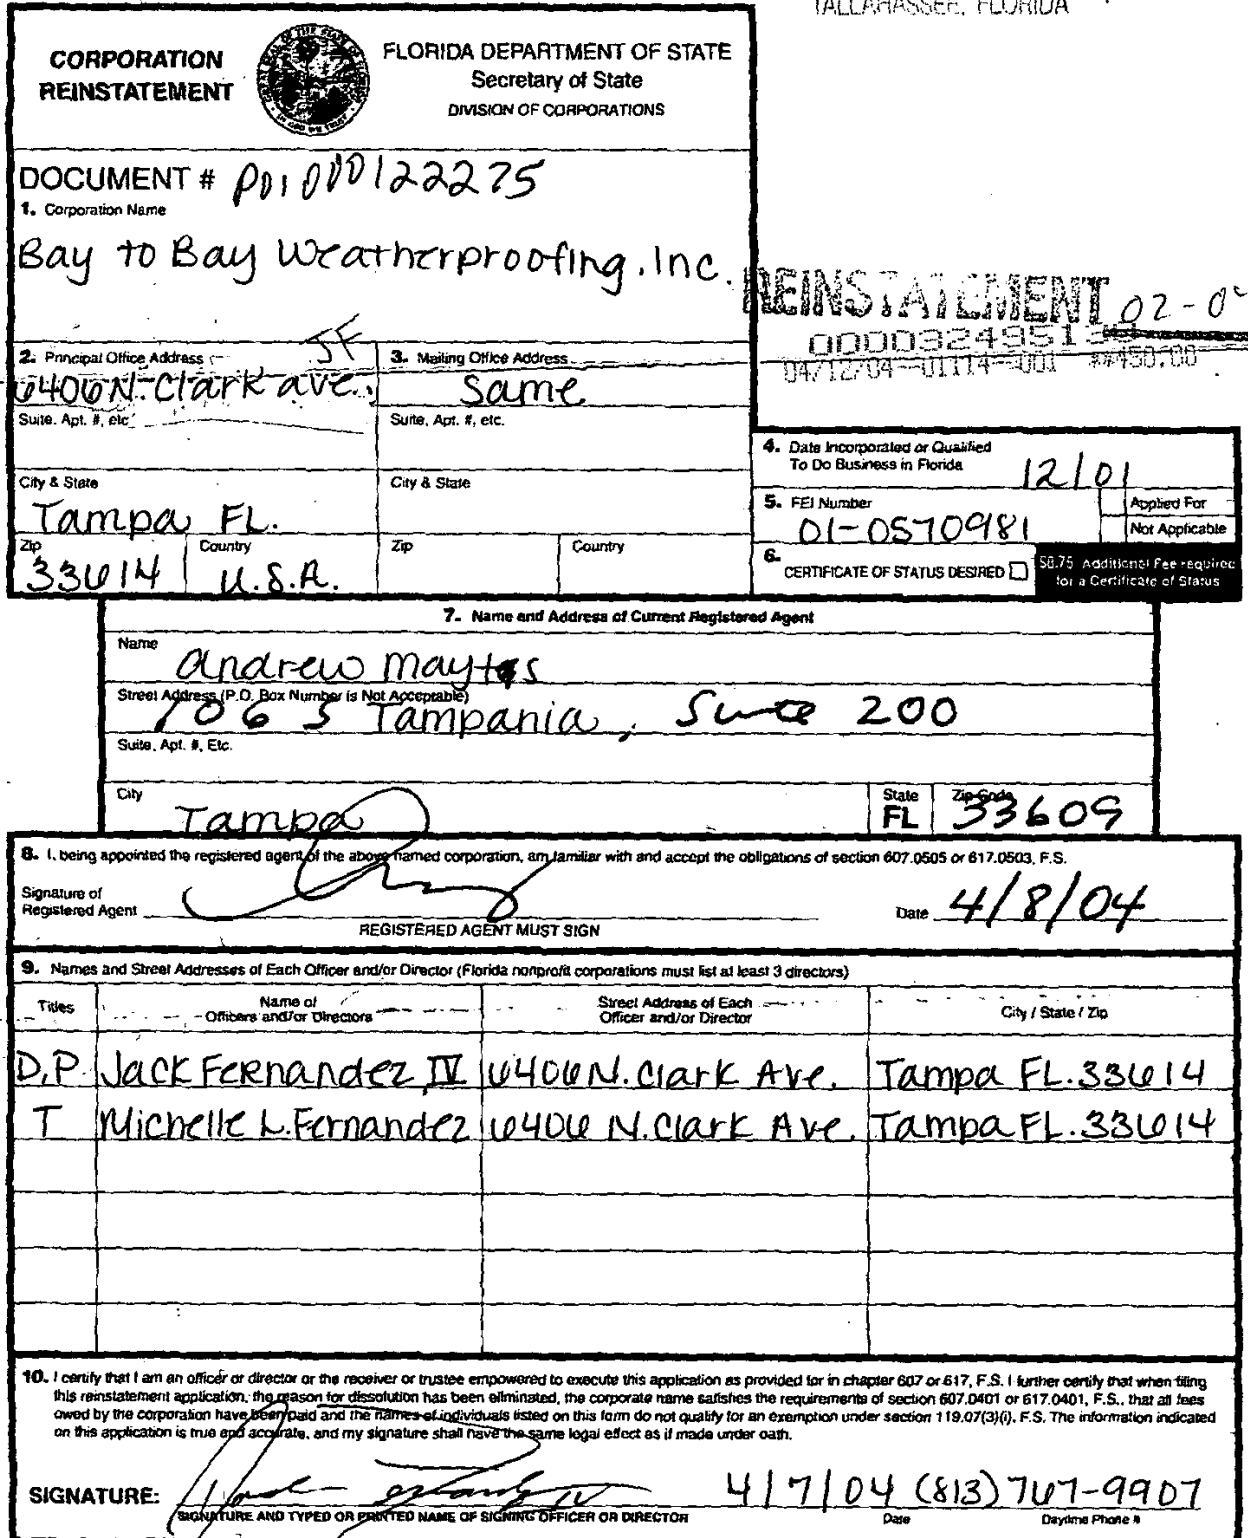 TALLAHASSEE, FLORIDA
CORPORATION
REINSTATEMENT
FLORIDA DEPARTMENT OF STATE
Secretary of State
DIVISION OF CORPORATIONS
DOCUMENT # P01000122275
1. Corporation Name
Bay to Bay Weatherproofing, Inc.
REINSTATEMENT 02-0
04/12/04--01114--001 **450.00
JF
2. Principal Office Address
3. Mailing Office Address
6406 N. Clark ave.
Same
Suite, Apt. #, etc.
Suite, Apt. #, etc.
4. Date Incorporated or Qualified
To Do Business in Florida
12/01
City & State
City & State
Tampa FL.
5. FEI Number
01-0570981
Applied For
Not Applicable
Zip
Country
Zip
Country
33614
U.S.A.
6. CERTIFICATE OF STATUS DESIRED
$8.75 Additional Fee required
for a Certificate of Status
7. Name and Address of Current Registered Agent
Name
Andrew Mayts
Street Address (P.O. Box Number is Not Acceptable)
106 S Tampania, Suite 200
Suite, Apt. #, Etc.
City
Tampa
State
FL
Zip Code
33609
8. I, being appointed the registered agent of the above named corporation, am familiar with and accept the obligations of section 607.0505 or 617.0503, F.S.
Signature of
Registered Agent
Date 4/8/04
REGISTERED AGENT MUST SIGN
9. Names and Street Addresses of Each Officer and/or Director (Florida nonprofit corporations must list at least 3 directors)
Titles
Name of
Officers and/or Directors
Street Address of Each
Officer and/or Director
City / State / Zip
D,P Jack Fernandez IV 6406 N. Clark Ave. Tampa FL. 33614
T Michelle L. Fernandez 6406 N. Clark Ave. Tampa FL. 33614
10. I certify that I am an officer or director or the receiver or trustee empowered to execute this application as provided for in chapter 607 or 617, F.S. I further certify that when filing
this reinstatement application, the reason for dissolution has been eliminated, the corporate name satisfies the requirements of section 607.0401 or 617.0401, F.S., that all fees
owed by the corporation have been paid and the names of individuals listed on this form do not qualify for an exemption under section 119.07(3)(i), F.S. The information indicated
on this application is true and accurate, and my signature shall have the same legal effect as if made under oath.
SIGNATURE:
4/7/04 (813) 767-9907
SIGNATURE AND TYPED OR PRINTED NAME OF SIGNING OFFICER OR DIRECTOR
Date
Daytime Phone #